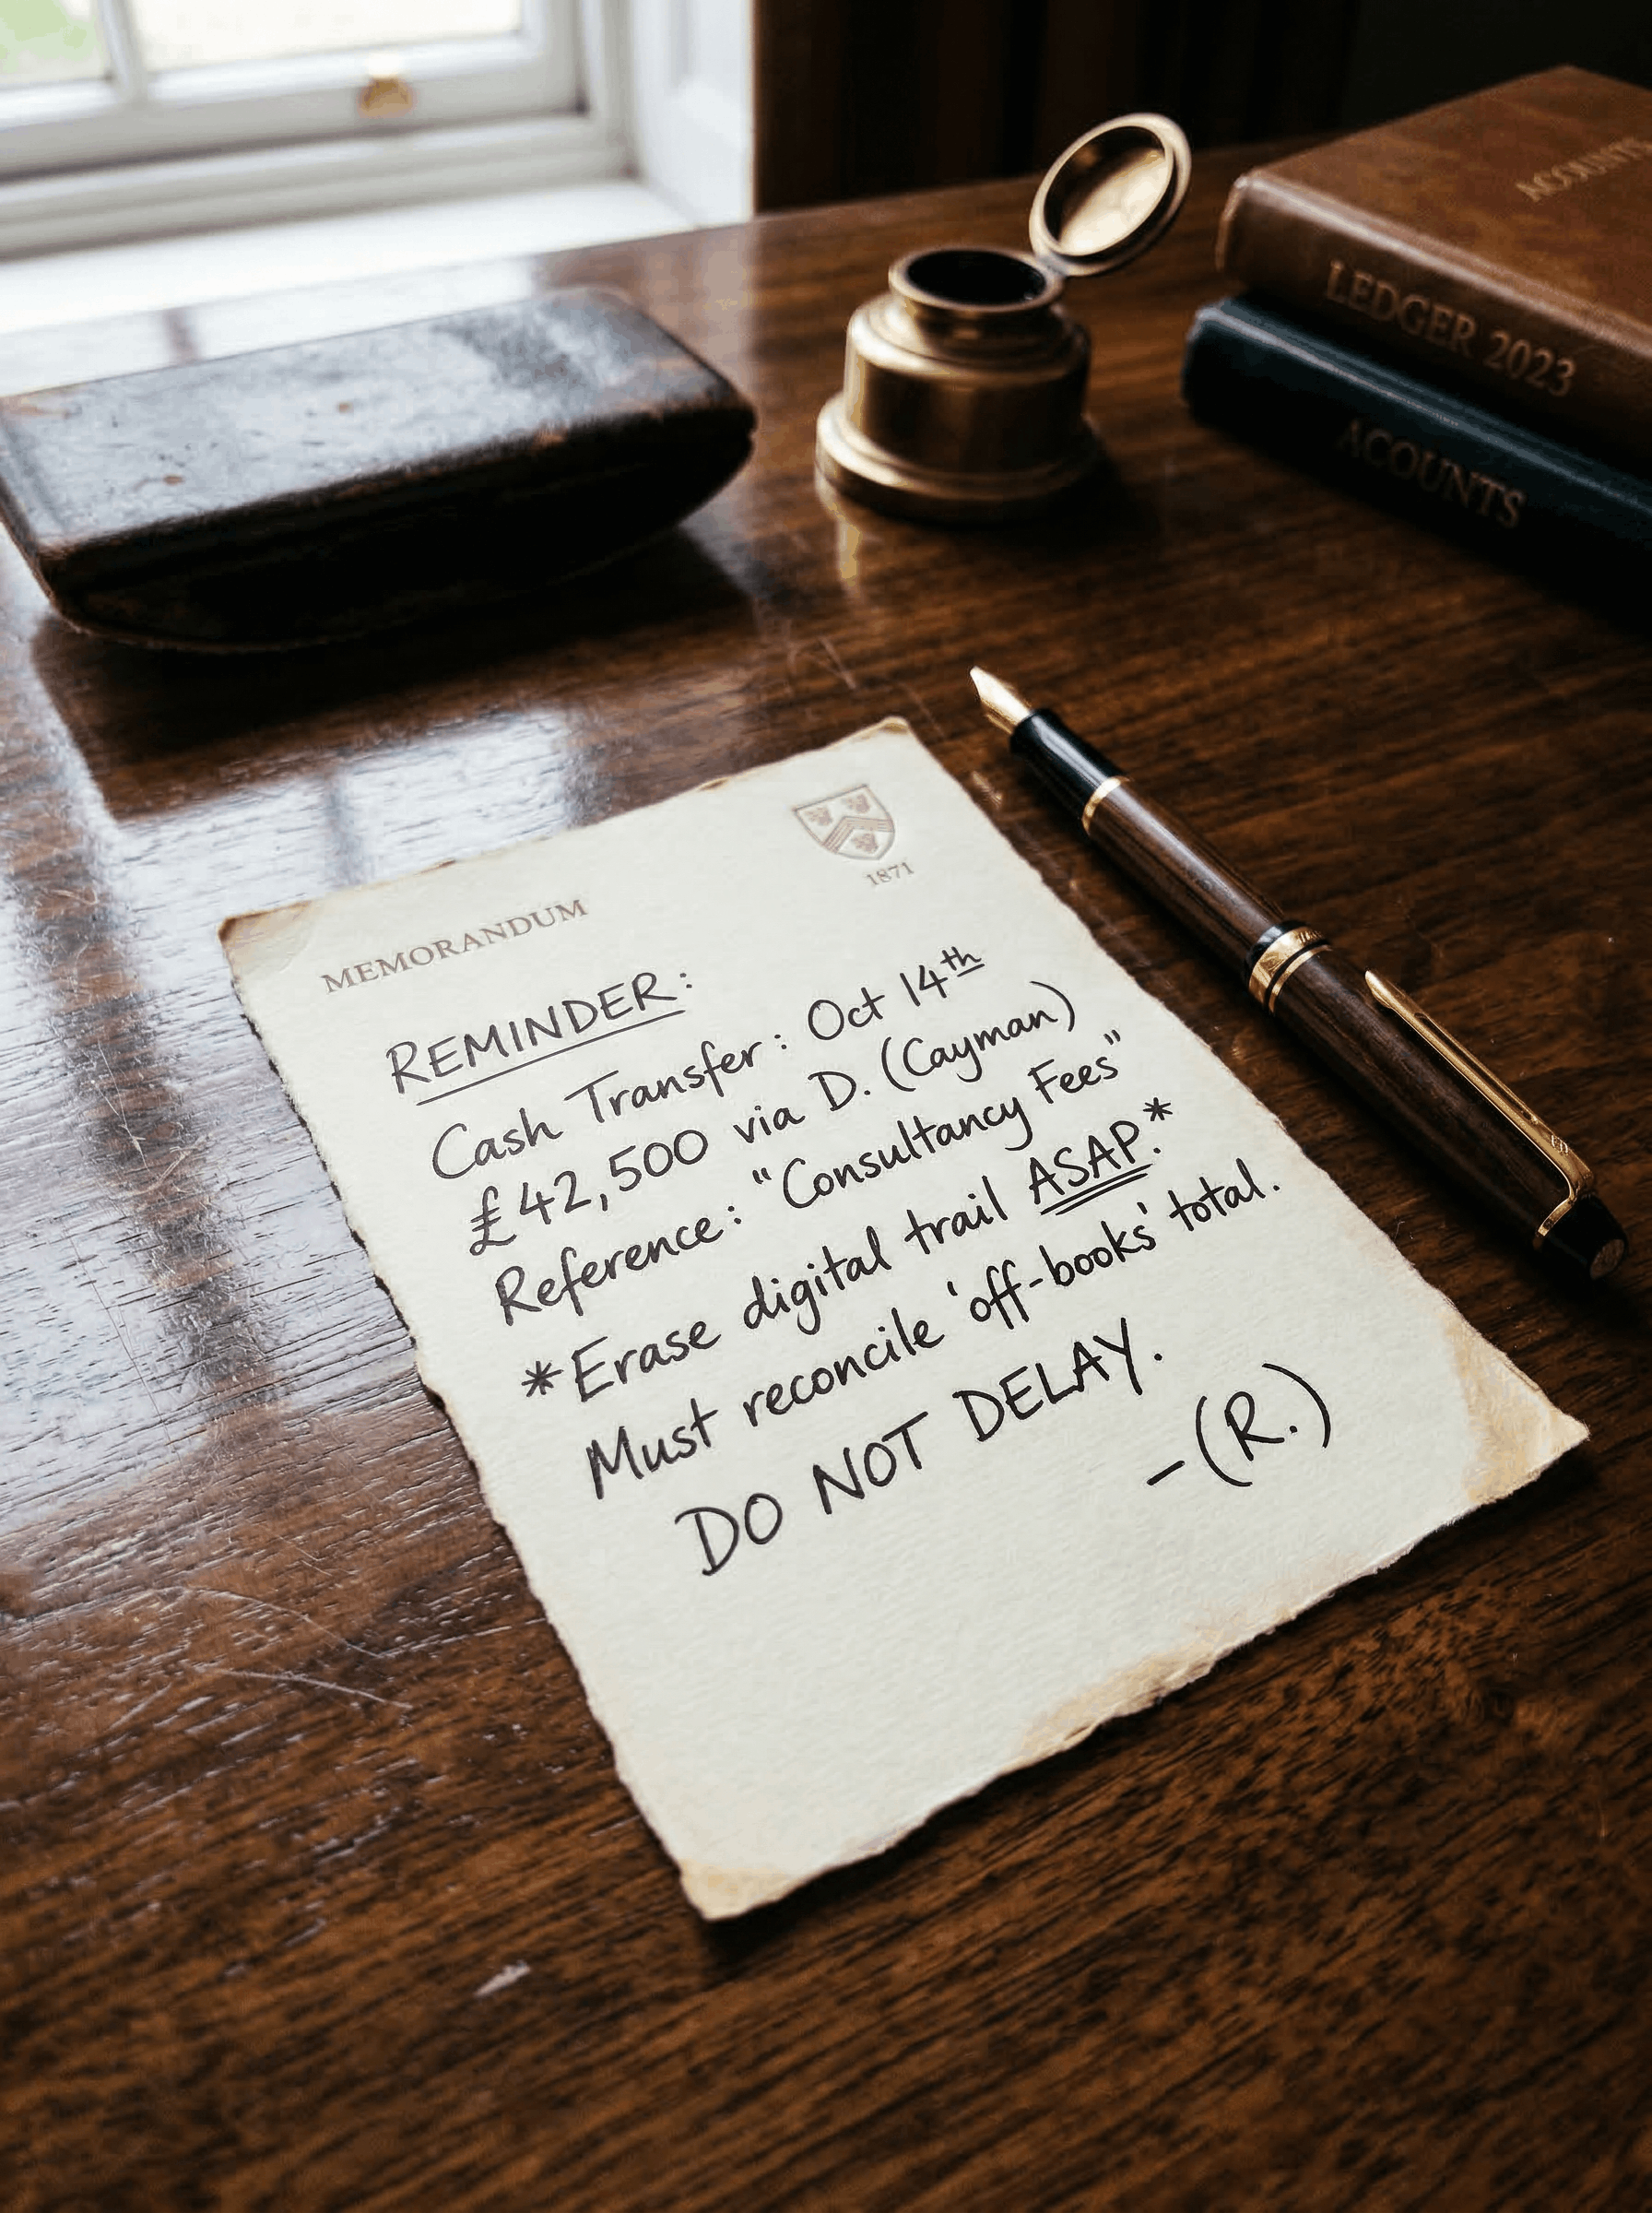 ACCOUNTS
LEDGER 2023
ACOUNTS
1871
MEMORANDUM
REMINDER:
Cash Transfer: Oct 14th
£42,500 via D. (Cayman)
Reference: "Consultancy Fees"
*Erase digital trail ASAP.*
Must reconcile 'off-books' total.
DO NOT DELAY.
-(R.)